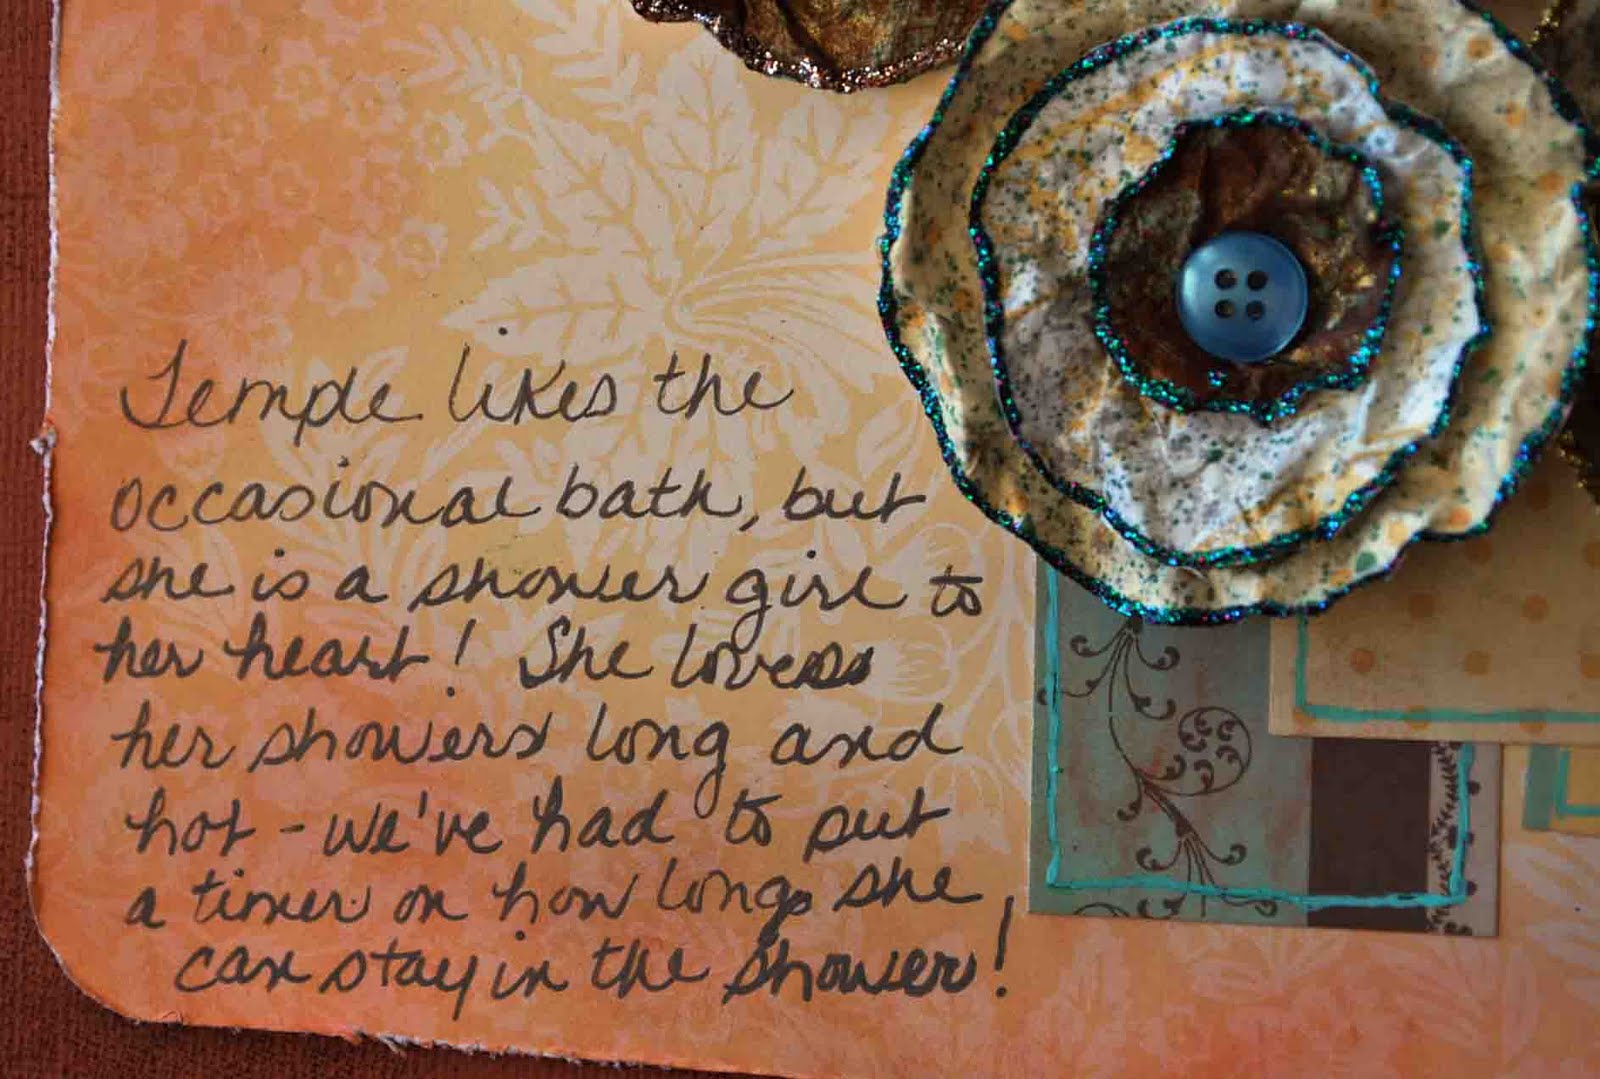 Temple likes the
occasional bath, but
she is a shower girl to
her heart! She loves
her showers long and
hot - we've had to put
a timer on how long she
can stay in the shower!